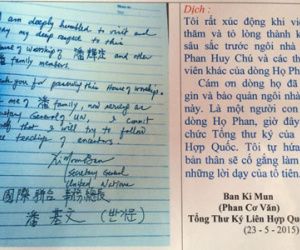 I am deeply humbled to visit and
my deep respect to this
House of worship of 潘輝注 and other
family members.
you for preserving this House of worship.
me of 潘 family, now serving as
Secretary General of UN, I commit
that I will try to follow
the teachings of ancestors.
Ki Moon Ban
Secretary General
United Nations
國際聯合 事務總長
潘基文 (반기문)
Dịch :
Tôi rất xúc động khi v
thăm và tỏ lòng thành k
sâu sắc trước ngôi nhà
Phan Huy Chú và các th
viên khác của dòng họ Ph
Cám ơn dòng họ đã
gìn và bảo quản ngôi nhà
này. Là một người con
dòng họ Phan, giờ đây
chức Tổng thư ký của
Hợp Quốc. Tôi tự hứa
bản thân sẽ cố gắng làm
những lời dạy của tổ tiên.
Ban Ki Mun
(Phan Cơ Văn)
Tổng Thư Ký Liên Hợp Qu
(23 - 5 - 2015)